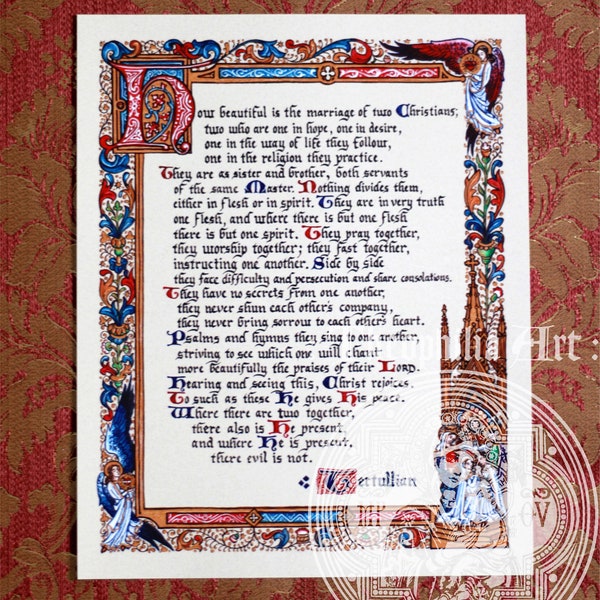 How beautiful is the marriage of two Christians;
two who are one in hope, one in desire,
one in the way of life they follow,
one in the religion they practice.
They are as sister and brother, both servants
of the same Master. Nothing divides them,
either in flesh or in spirit. They are in very truth
one flesh, and where there is but one flesh
there is but one spirit. They pray together,
they worship together; they fast together,
instructing one another. Side by side
they face difficulty and persecution and share consolations.
They have no secrets from one another,
they never shun each other's company,
they never bring sorrow to each other's heart.
Psalms and hymns they sing to one another,
striving to see which one will chant
more beautifully the praises of their Lord.
Hearing and seeing this, Christ rejoices.
To such as these He gives His peace.
Where there are two together,
there also is He present,
and where He is present,
there evil is not.
Tertullian
Art :